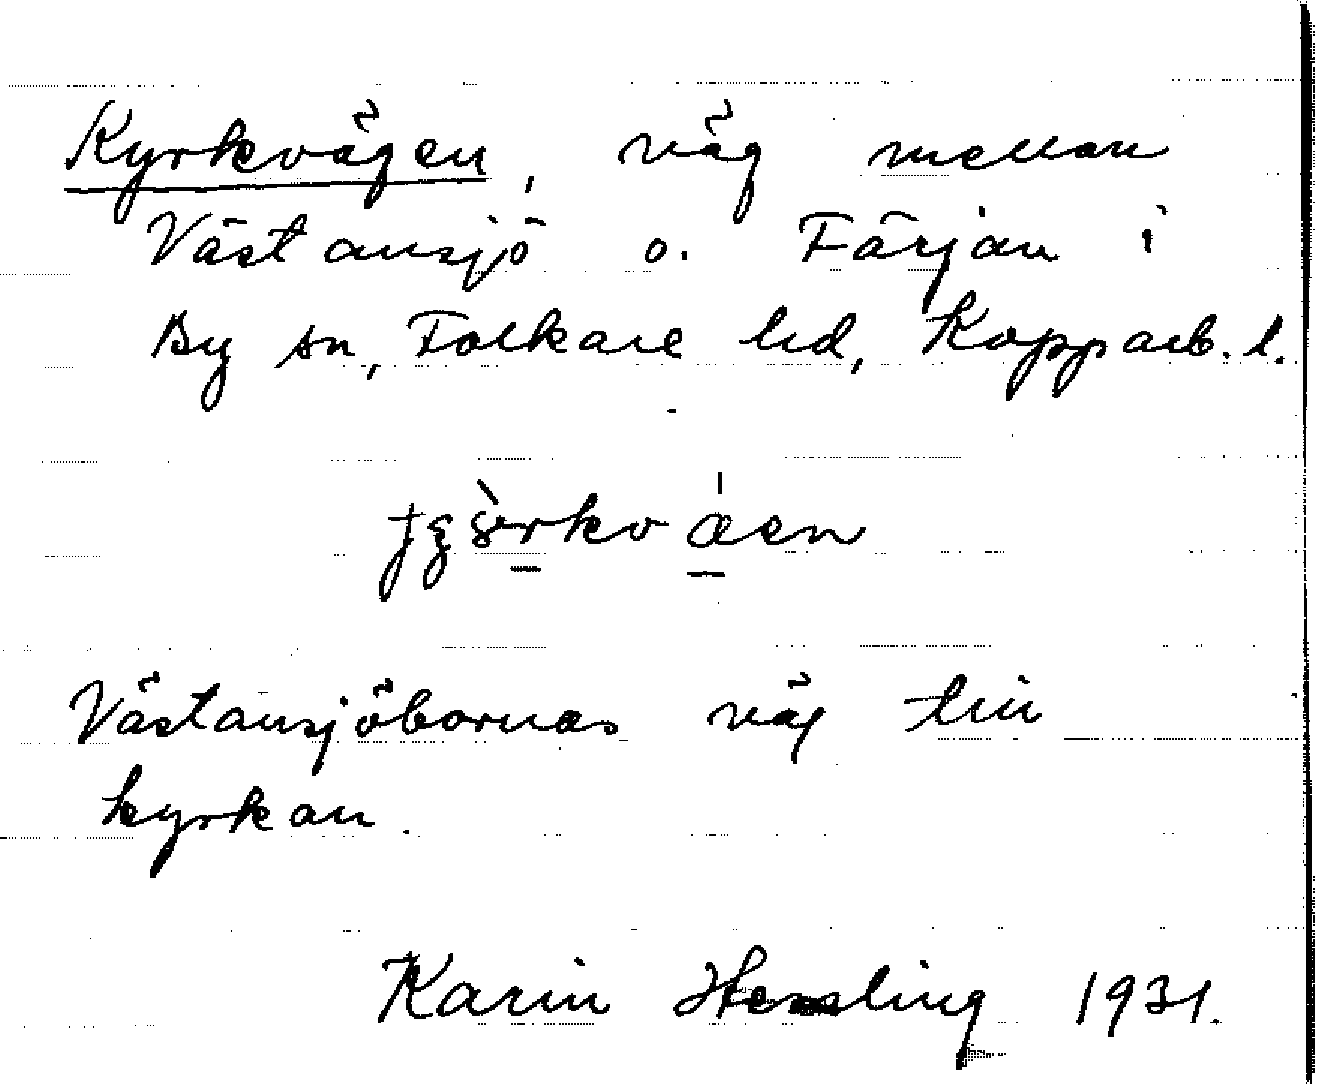 Kyrkvägen, väg mellan
Västansjö o. Färjan i
By sn, Folkare hd, Kopparb. l.
Västansjöbornas väg till
kyrkan.
Karin Hessling 1931.